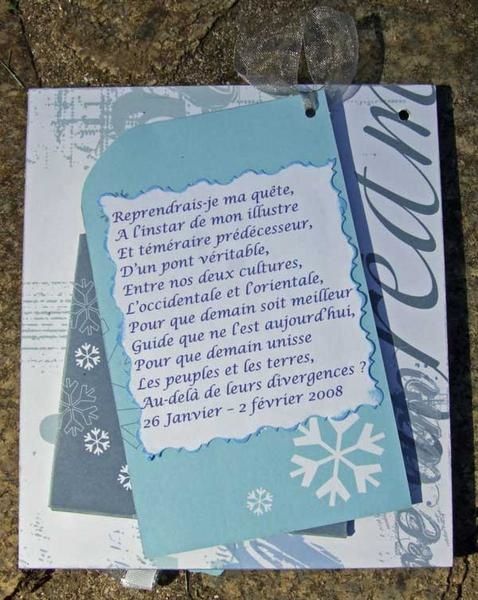 Reprendrais-je ma quête,
A l'instar de mon illustre
Et téméraire prédécesseur,
D'un pont véritable,
Entre nos deux cultures,
L'occidentale et l'orientale,
Pour que demain soit meilleur
Guide que ne l'est aujourd'hui,
Pour que demain unisse
Les peuples et les terres,
Au-delà de leurs divergences ?
26 Janvier – 2 février 2008
ream